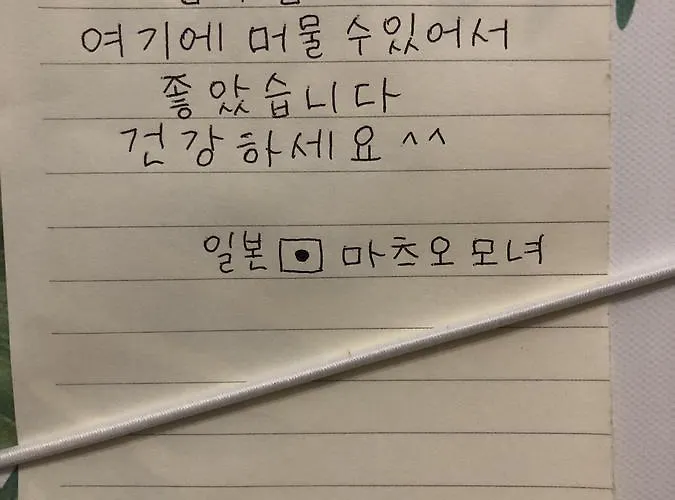 여기에 머물 수있어서
좋았습니다
건강하세요 ^^
일본 마츠오 모녀